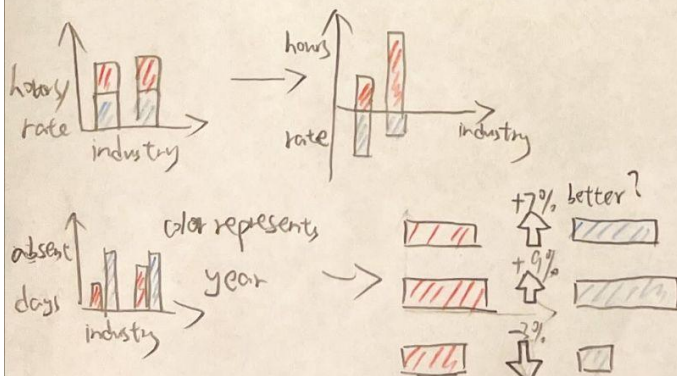 hours/
rate
industry
hours
rate
industry
absent
days
industry
color represents
year
+7%
better?
+9%
-3%